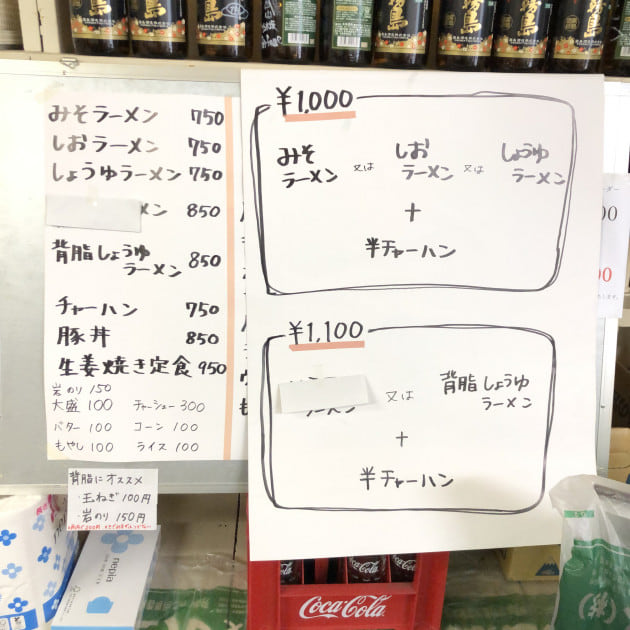 みそラーメン 750
しおラーメン 750
しょうゆラーメン 750
メン 850
背脂しょうゆ
ラーメン 850
チャーハン 750
豚丼 850
生姜焼き定食 950
岩のり 150
大盛 100 チャーシュー 300
バター 100 コーン 100
もやし 100 ライス 100
背脂にオススメ
・玉ねぎ 100円
・岩のり 150円
¥1,000
みそ
ラーメン
又は
しお
ラーメン
又は
しょうゆ
ラーメン
+
半チャーハン
¥1,100
ラーメン
又は
背脂しょうゆ
ラーメン
+
半チャーハン
nepia
Coca-Cola